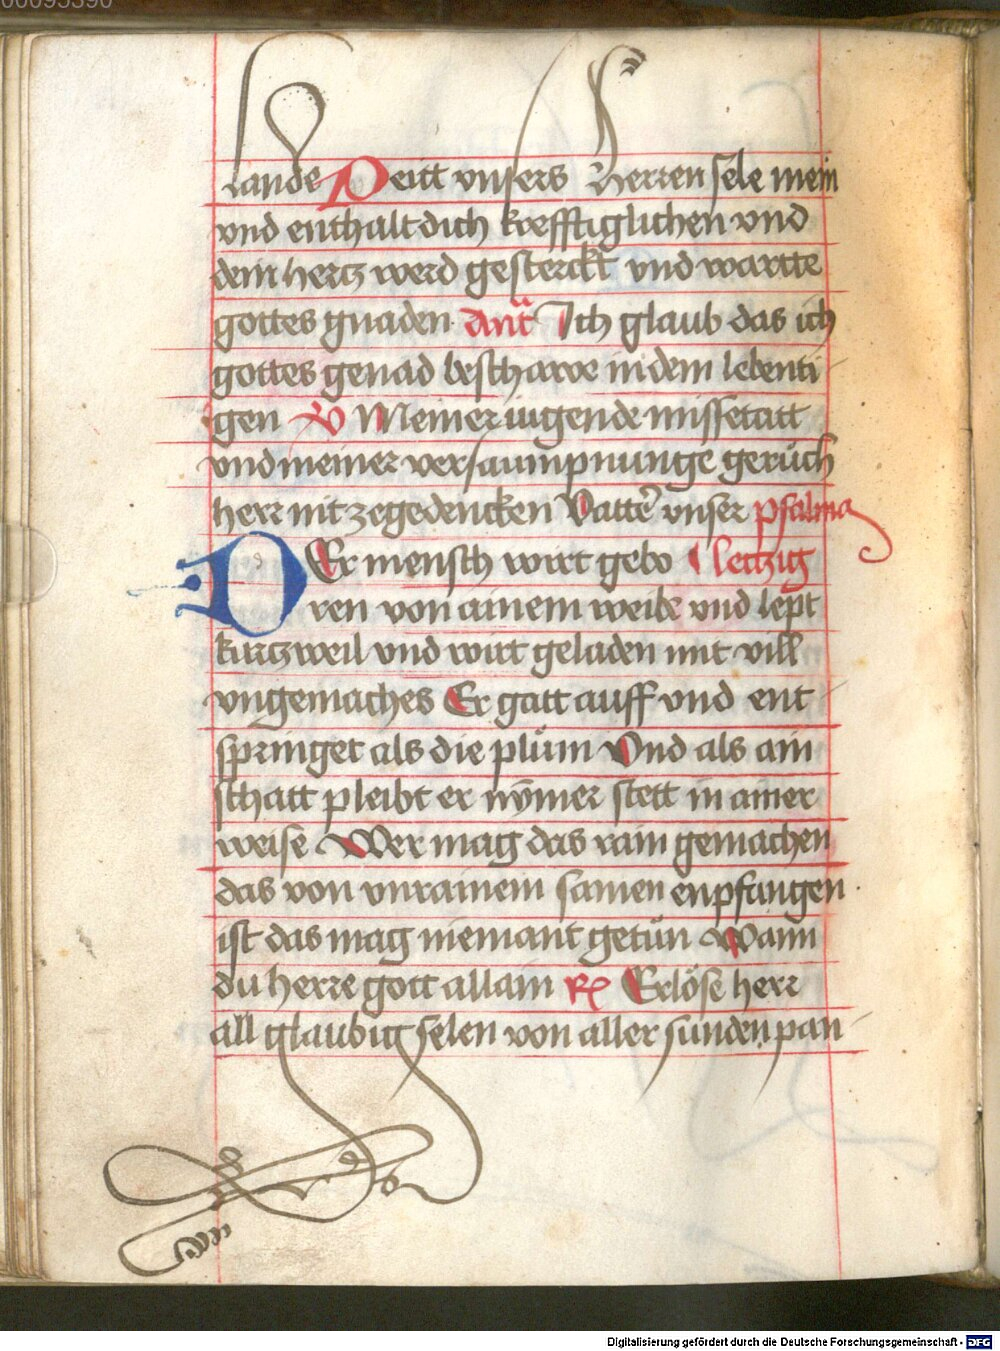 00095390
lande Peitt vnsers Herren sele mein
vnd enthalt dich krefftiglichen vnd
dein hertz werd gesterckt vnd wartte
gottes gnaden Ant Ich glaub das ich
gottes genad beschawe in dem lebenti
gen V Meiner iugende missetatt
vnd meiner versaumpnunge geruch
herr nit ze gedencken Vatter vnser psalm
Er mensch wirt gebo letzig
D
ren von ainem weibe vnd lept
kurtzweil vnd wirt geladen mit vill
vngemaches Er gatt auff vnd ent
springet als die plům Vnd als ain
schatt pleibt er nymer stett in ainer
weise Wer mag das rain gemachen
das von vnrainem samen enpfangen
ist das mag niemant getůn Wann
du herre gott allain R Erlöse herr
all glaubig selen von aller sunden pan
Digitalisierung gefördert durch die Deutsche Forschungsgemeinschaft - DFG